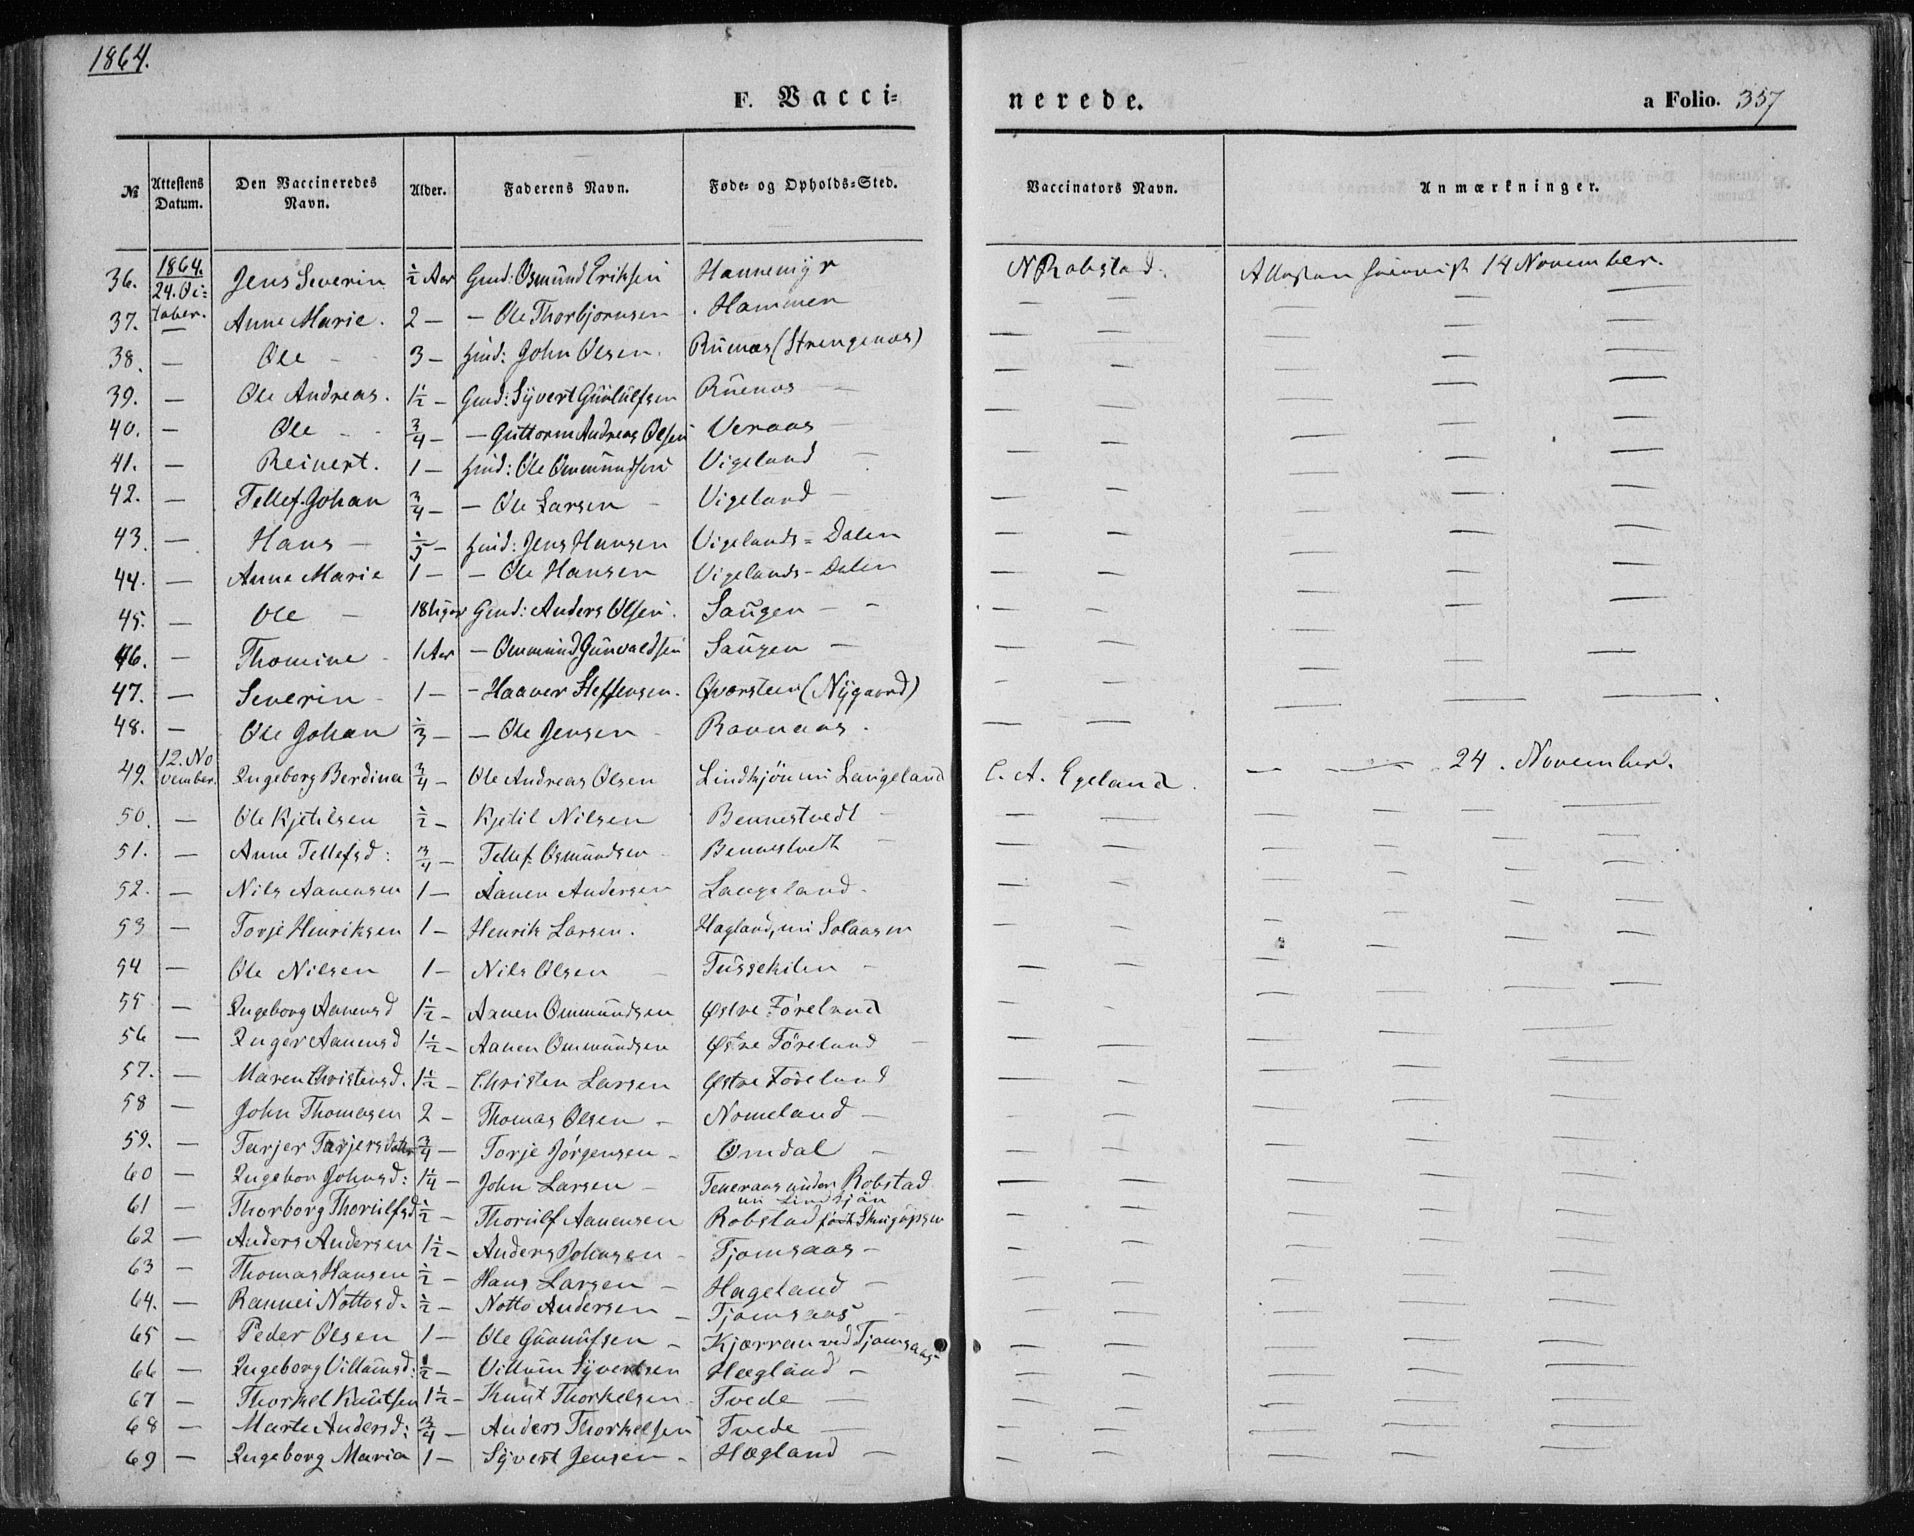 1864.
F. Vacci= nerede. a Folio. 357
№ Attestens Datum. Den Vaccineredes Navn. Alder. Faderens Navn. Føde= og Opholds=Sted. Vaccinators Navn. Anmærkninger.
36. 1864. 24. Oc=tober. Jens Severin ½ Aar Gmd: Osmund Eriksen Hannemyr N Robstad. 14 November.
37. — Anne Marie. 2 — — Ole Thorbjørnsen Hammen — — — — —
38. — Ole 3 — Hmd: John Olsen. Ruenæs (Strengenæs) — — — — —
39. — Ole Andreas. 1½ — Gmd: Syvert Gunlulfsen Ruenæs — — — — —
40. — Ole ¾ — — Guttorm Andreas Olsen Veraas — — — — —
41. — Reinert. 1 — Hmd: Ole Ommundsen Vigeland — — — — —
42. — Tellef Johan ¾ — — Ole Larsen Vigeland — — — — —
43. — Hans — Hmd: Jens Hansen Vigelands=Dalen — — — — —
44. — Anne Marie 1 — — Ole Hansen Vigelands-Dalen — — — — —
45. — Ole 18 Uger Gmd: Anders Olsen. Saugen — — — — —
46. — Thomine 1 Aar — Ommund Gunvaldsen Saugen — — — — —
47. — Severin 1 — — Haaver Steffensen. Qvarsteen (Nygaard) — — — — —
48. — Ole Johan — — Ole Jensen Ravnaas. — — — — —
49. 12. November. Ingeborg Berdina ¾ — Ole Andreas Olsen Lindkjøn Langeland C. A. Egeland. — — 24. November.
50. — Ole Kjetilsen ½ — Kjetil Nilsen Bennestvedt — — — — —
51. — Anne Tellefsd: ¾ — Tellef Osmundsen Bennestvedt — — — — —
52. — Nils Aanensen 1 — Aanen Andersen Langeland. — — — — —
53 — Torje Henriksen 1 — Henrik Larsen. Hagland, Solaasen — — — — —
54 — Ole Nilsen 1 — Nils Olsen Tussekilen — — — — —
55 — Ingeborg Aanensd 1½ — Aanen Ommundsen Østre Føreland — — — — —
56 — Inger Aanensd 1½ — Aanen Ommundsen Østre Føreland — — — — —
57. — Maren Christensd. 1½ — Christen Larsen Østre Føreland — — — — —
58 — John Thomasen 2 — Thomas Olsen Nomeland — — — — —
59. — Tarjer Tarjersdatter ¾ — Torje Jørgensen Omdal — — — — —
60 — Ingebor Johnsd: 1¼ — John Larsen Teneraas under Robstad — — — — —
61 — Thorborg Thorulfsd ½ — Thorulf Aanensen Robstad — — — — —
62 — Anders Andersen 1½ — Anders Johnsen Tjomsaas — — — — —
63 — Thomas Hansen ½ — Hans Larsen Hageland — — — — —
64. — Rannei Nottosd. ½ — Notto Andersen Tjomsaas — — — — —
65 — Peder Olsen 1 — Ole Gunulfsen Kjærran ved Tjomsaas — — — — —
66 — Ingeborg Villumsd: ½ — Villum Syvertsen Hægland — — — — —
67 — Thorkel Knutsen 1½ — Knut Thorkelsen Tvede — — — — —
68 — Marte Andersd: ¾ — Anders Thorkelsen Tvede — — — — —
69 — Ingeborg Maria 1 — Syvert Jensen Hægland — — — — —